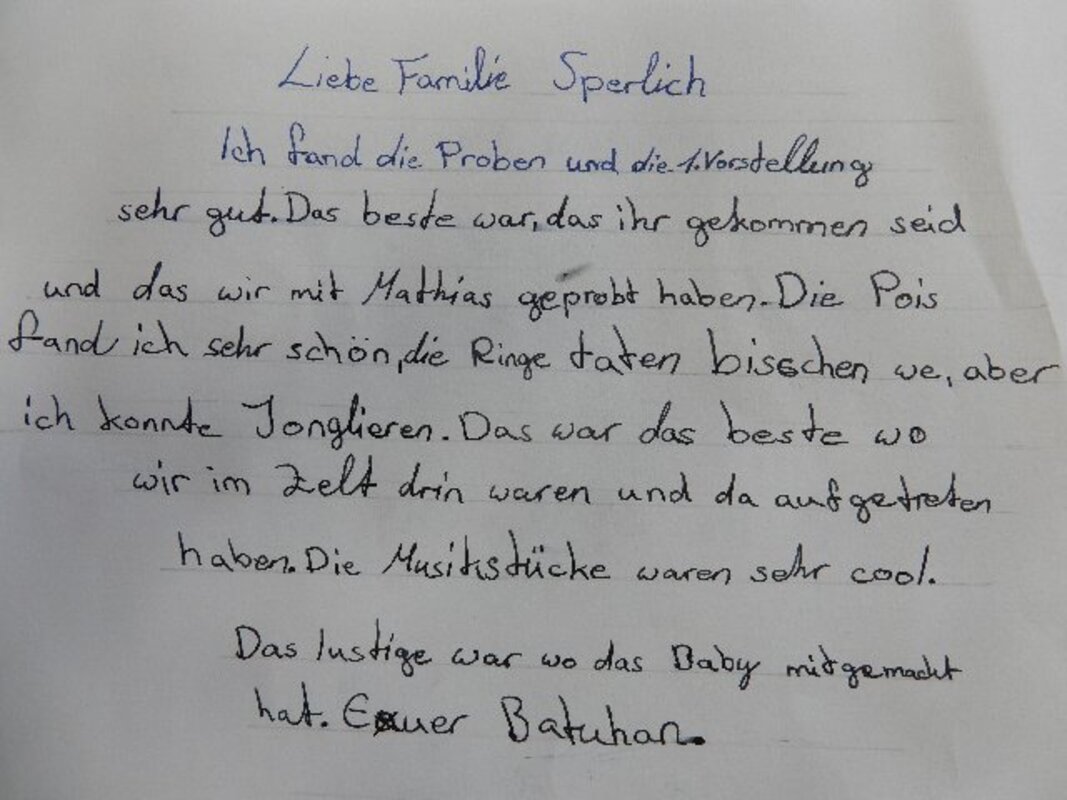 Liebe Familie Sperlich
Ich fand die Proben und die 1. Vorstellung
sehr gut. Das beste war, das ihr gekommen seid
und das wir mit Mathias geprobt haben. Die Pois
fand ich sehr schön, die Ringe taten bisschen we, aber
ich konnte Jonglieren. Das war das beste wo
wir im Zelt drin waren und da aufgetreten
haben. Die Musikstücke waren sehr cool.
Das lustige war wo das Baby mitgemacht
hat. Euer Batuhan.